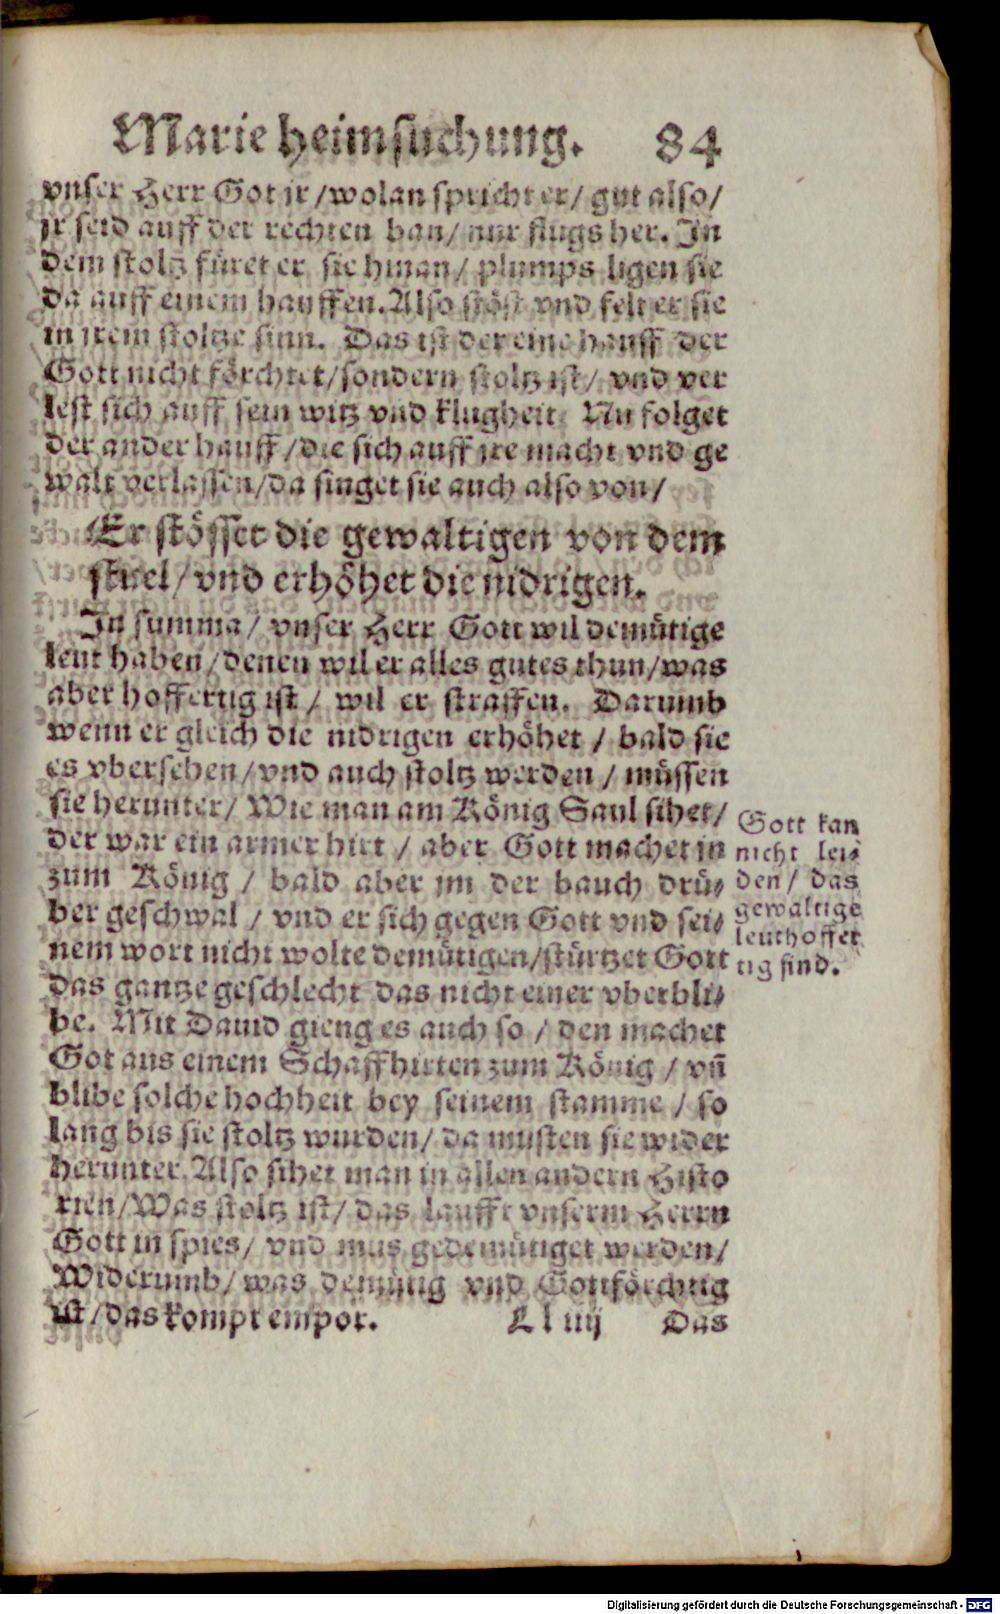 Marie heimsuchung. 84
vnser Herr Got jr / wolan spricht er / gut also /
jr seid auff der rechten ban / nur flugs her. In
dem stoltz füret er sie hinan / plumps ligen sie
da auff einem hauffen. Also stöst vnd felt er sie
in jrem stoltze sinn. Das ist der eine hauff der
Gott nicht förchtet / sondern stoltz ist / vnd ver
lest sich auff sein witz vnd klugheit. Nu folget
der ander hauff / die sich auff jre macht vnd ge
walt verlassen / da singet sie auch also von /
Er stösset die gewaltigen von dem
stuel / vnd erhöhet die nidrigen.
In summa / vnser Herr Gott wil demütige
leut haben / denen wil er alles gutes thun / was
aber hoffertig ist / wil er straffen. Darumb
wenn er gleich die nidrigen erhöhet / bald sie
es vbersehen / vnd auch stoltz werden / müssen
sie herunter / Wie man am König Saul sihet /
der war ein armer hirt / aber Gott machet jn
zum König / bald aber jm der bauch drü⸗
ber geschwal / vnd er sich gegen Gott vnd sei⸗
nem wort nicht wolte demütigen / stürtzet Gott
das gantze geschlecht das nicht einer vberbli⸗
be. Mit Dauid gieng es auch so / den machet
Got aus einem Schaffhirten zum König / vñ
blibe solche hochheit bey seinem stamme / so
lang bis sie stoltz wurden / da musten sie wider
herunter. Also sihet man in allen andern Histo
rien / Was stoltz ist / das laufft vnserm Herrn
Gott in spies / vnd mus gedemütiget werden /
Widerumb / was demütig vnd Gottförchtig
ist / das kompt empor.
Ll iiij Das
Gott kan
nicht lei⸗
den / das
gewaltige
leut hoffer
tig sind.
Digitalisierung gefördert durch die Deutsche Forschungsgemeinschaft - DFG